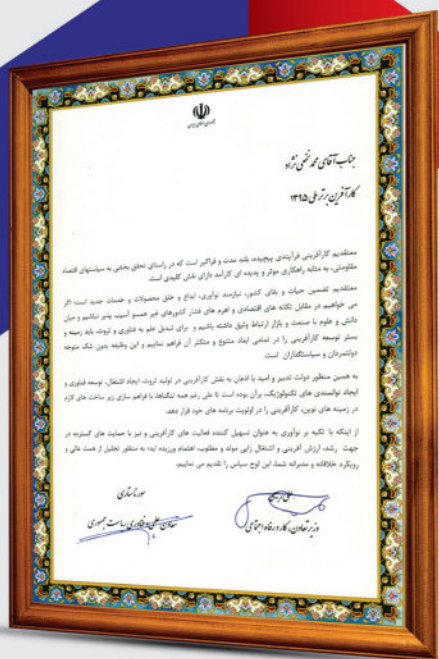 جمهوری اسلامی ایران
جناب آقای محمد نخعی نژاد
کارآفرین برتر ملی ۱۳۹۵
معتقدیم کارآفرینی فرآیندی پیچیده، بلند مدت و فراگیر است که در راستای تحقق بخشی به سیاستهای اقتصاد
مقاومتی، به مثابه راهکاری موثر و پدیده ای کارآمد دارای نقش کلیدی است.
معتقدیم تضمین حیات و بقای کشور، نیازمند نوآوری، ابداع و خلق محصولات و خدمات جدید است؛ اگر
می خواهیم در مقابل تکانه های اقتصادی و اهرم های فشار کشورهای غیر همسو آسیب پذیر نباشیم و میان
دانش و علوم با صنعت و بازار ارتباط وثیق داشته باشیم و برای تبدیل علم به فناوری و ثروت، باید زمینه و
بستر توسعه کارآفرینی را در تمامی ابعاد متنوع و متکثر آن فراهم نماییم و این وظیفه بدون شک متوجه
دولتمردان و سیاستگذاران است.
به همین منظور دولت تدبیر و امید با اذعان به نقش کارآفرینی در تولید ثروت، ایجاد اشتغال، توسعه فناوری و
ایجاد توانمندی های تکنولوژیک، برآن بوده است تا علی رغم همه تنگناها، با فراهم سازی زیر ساخت های لازم
در زمینه های نوین، کارآفرینی را در اولویت برنامه های خود قرار دهد.
از اینکه با تکیه بر نوآوری به عنوان تسهیل کننده فعالیت های کارآفرینی و نیز با حمایت های گسترده در
جهت رشد، ارزش آفرینی و اشتغال زایی مولد و مطلوب، اهتمام ورزیده اید؛ به منظور تجلیل از همت عالی و
رویکرد خلاقانه و مدبرانه شما، این لوح سپاس را تقدیم می نماییم.
علی ربیعی
وزیر تعاون، کار و رفاه اجتماعی
سورنا ستاری
معاون علمی و فناوری ریاست جمهوری